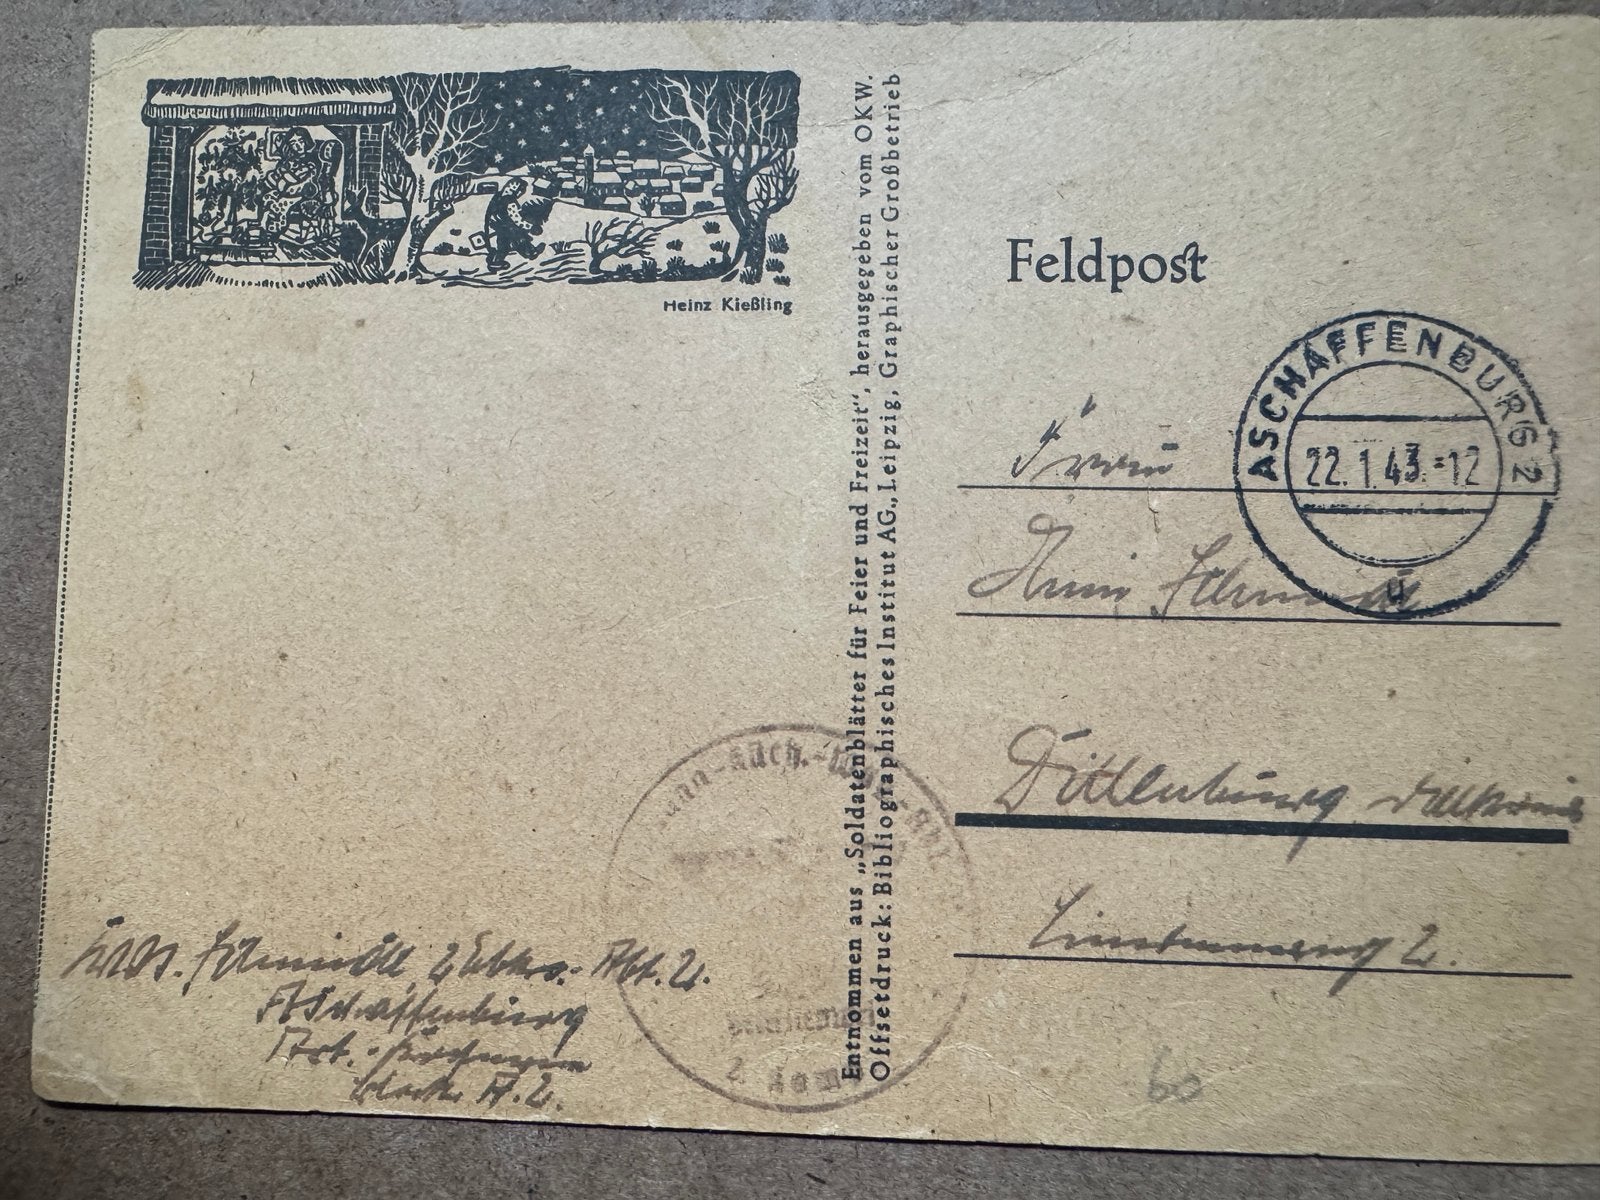 Heinz Kießling
Entnommen aus „Soldatenblätter für Feier und Freizeit“, herausgegeben vom OKW.
Offsetdruck: Bibliographisches Institut AG., Leipzig, Graphischer Großbetrieb
Feldpost
ASCHAFFENBURG 2
22.1.43.-12
ü
Frau
Anni Schmidt
Dillenburg Dillkreis
2.
Schmidt Abt. 2.
Aschaffenburg
Art.-
Block A. 2.
2 Kom
60